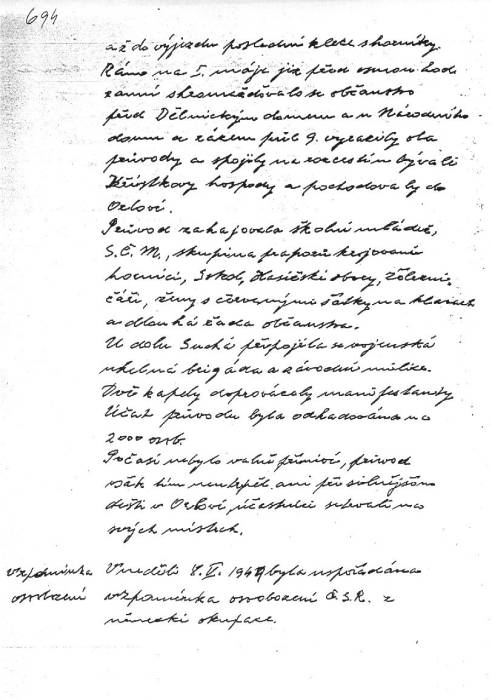 694
až do výjezdu poslední klece s horníky.
Ráno na I. mája již před osmou hod.
ranní shromažďovalo se občanstvo
před Dělnickým domem a u Národního
domu a rázem půl 9. vyrazily oba
průvody a spojily na rozcestím bývalé
Křístkovy hospody a pochodovaly do
Orlové.
Průvod zahajovala školní mládež,
S.Č.M., skupina praporů krojovaní
horníci, Sokol, Hasičské sbory, železni-
čáři, ženy s červenými šátky na hlavách
a dlouhá řada občanstva.
U dolu Suchá připojila se vojenská
uhelná brigáda a závodní milice.
Dvě kapely doprovázely manifestanty
Účast průvodu byla odhadována na
2000 osob.
Počasí nebylo valně příznivé, průvod
však tím neutrpěl, ani při silnějším
dešti v Orlové, účastníci setrvali na
svých místech.
Vzpomínka
osvobození
V neděli 8.V. 1949 byla uspořádána
vzpomínka osvobození Č.S.R. z
německé okupace.